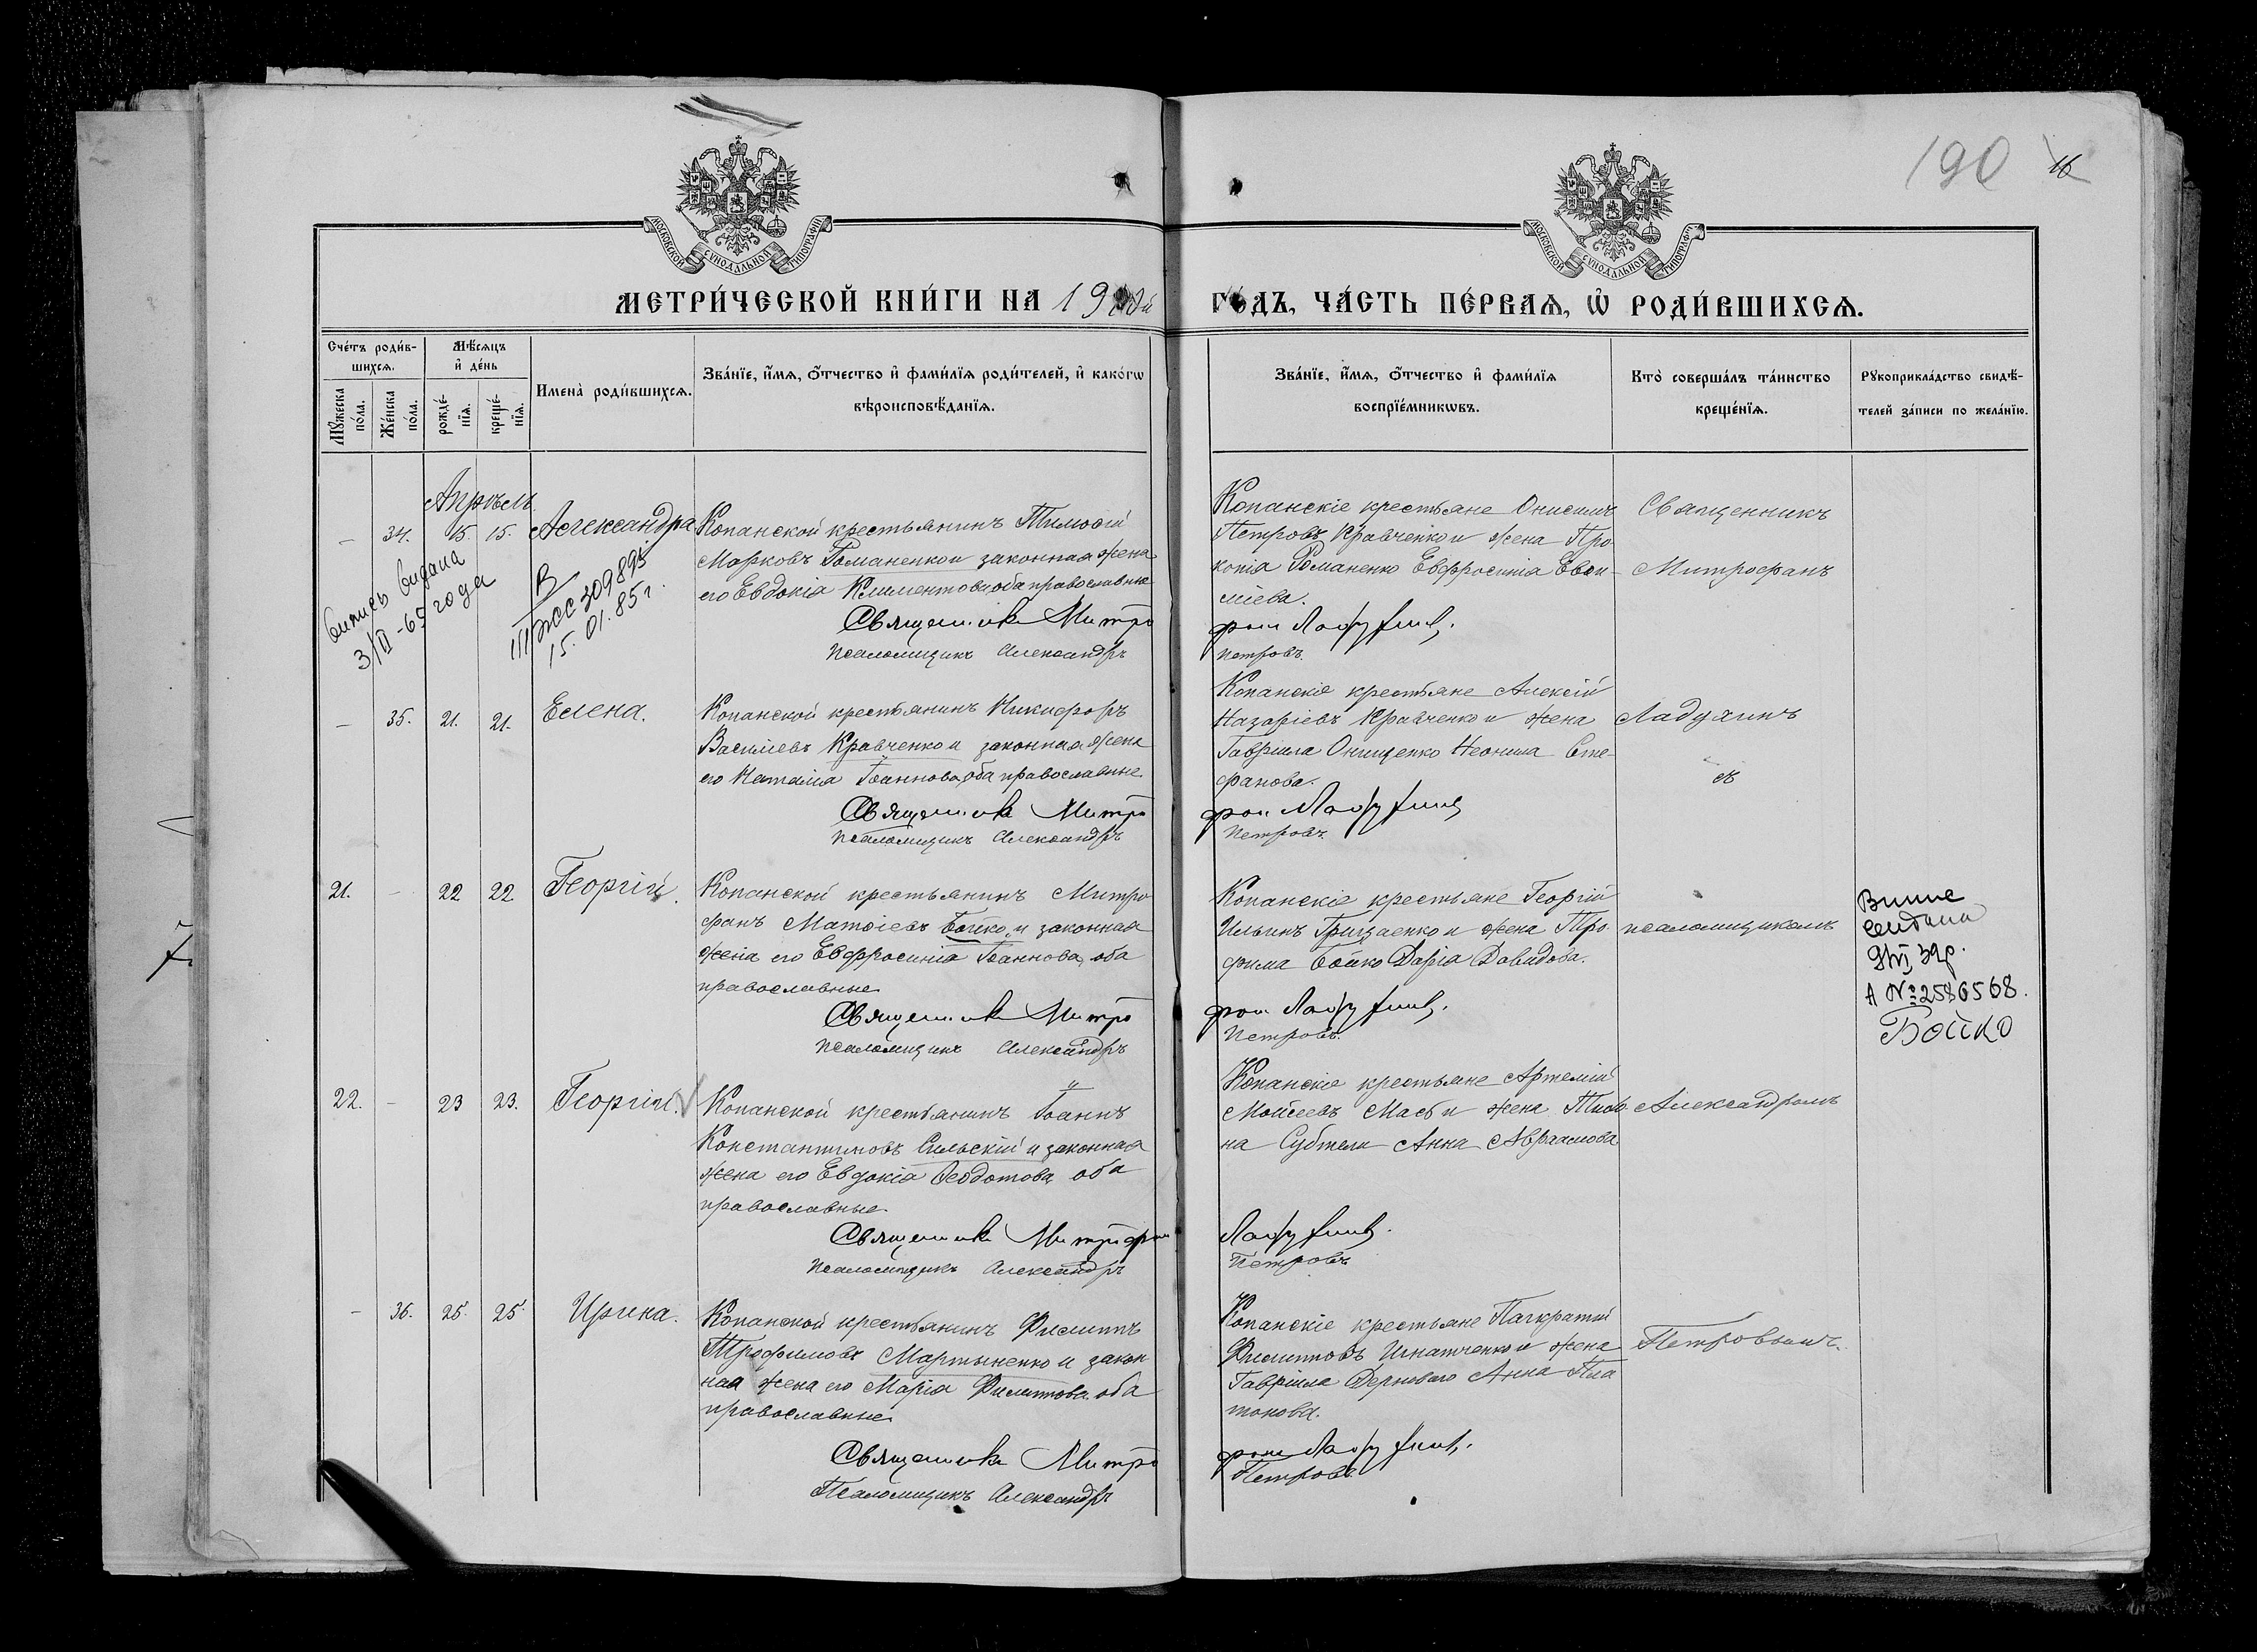 190 16
МОСКОВСКОЙ СѴНОДАЛЬНОЙ ТИПОГРАФІИ
МОСКОВСКОЙ СѴНОДАЛЬНОЙ ТИПОГРАФІИ
МЕТРИ́ЧЕСКОЙ КНИ́ГИ НА 19
ГО́ДЪ, ЧА́СТЬ ПЕ́РВАѦ, Ѡ҆ РОДИ́ВШИХСѦ.
Сче́тъ роди́в-
шихсѧ.
Мꙋ́жеска по́ла.
Же́нска по́ла.
Мѣ́сѧцъ и҆ де́нь
рожде́-нїѧ.
креще́-нїѧ.
Имена̀ роди́вшихсѧ.
Зва́нїе, и҆́мѧ, о҆́тчество и҆ фами́лїѧ роди́телей, и҆ како́гѡ
вѣроисповѣ́данїѧ.
Зва́нїе, и҆́мѧ, о҆́тчество и҆ фами́лїѧ
воспрїе́мникѡвъ.
Кто̀ соверша́лъ та́инство
креще́нїѧ.
Рꙋкоприкла́дство свидѣ́-
телей за́писи по жела́нїю.
Апрѣль
— 34. 15. 15. Александра
Копанской крестьянинъ Тимоѳей
Марковъ Романенко и законная жена
его Евдокія Климентова, оба православные
Священникъ Митро
Псаломщикъ Александръ
Копанскіе крестьяне Онисимъ
Петровъ Кравченко и жена Про-
копія Романенко Евфросинія Евѳи-
міева.
фанъ Ладухинъ.
Петровъ.
Священникъ
Митрофанъ
выпись выдана
3/II -65 года
В
III ЖС 309895
15.01.85 г.
— 35. 21. 21. Елена.
Копанской крестьянинъ Никифоръ
Василіевъ Кравченко и законная жена
его Наталія Іоаннова, оба православные.
Священникъ Митро
Псаломщикъ Александръ
Копанскіе крестьяне Алексій
Назаріевъ Кравченко и жена
Гавріила Онищенко Неонила Сте-
фанова.
фанъ Ладухинъ
Петровъ.
Ладухинъ
съ
21. — 22 22 Георгій.
Копанской крестьянинъ Митро
фанъ Матѳіевъ Бойко, и законная
жена его Евфросинія Іоаннова, оба
православные
Священникъ Митро
Псаломщикъ Александръ
Копанскіе крестьяне Георгій
Ильинъ Грицаенко и жена Тро-
фима Бойко Дарія Давидова.
фанъ Ладухинъ.
Петровъ.
псаломщикомъ
видана
А № 2586568.
Бойко
22. — 23 23. Георгій.
Копанской крестьянинъ Іоаннъ
Константиновъ Сильскій и законная
жена его Евдокія Ѳеодотова, оба
православные.
Священникъ Митрофанъ
Псаломщикъ Александръ
Копанскіе крестьяне Артемій
Моисеевъ и жена
на Субтели Анна Авраамова
Ладухинъ.
Петровъ
Александромъ
— 36. 25. 25. Ирина.
Копанской крестьянинъ Филиппъ
Трофимовъ Мартыненко и закон
ная жена его Марія Филиппова, оба
православные.
Священникъ Митро
Псаломщикъ Александръ
Копанскіе крестьяне Панкратій
Филипповъ Игнатченко и жена
Гавріила Анна Пла
тонова.
фанъ Ладухинъ.
Петровъ
Петровымъ.